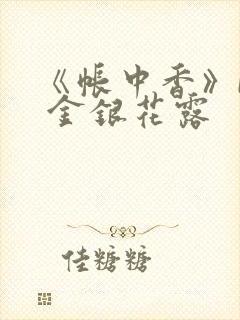 《帐中香》
金银花露
佳糖糖